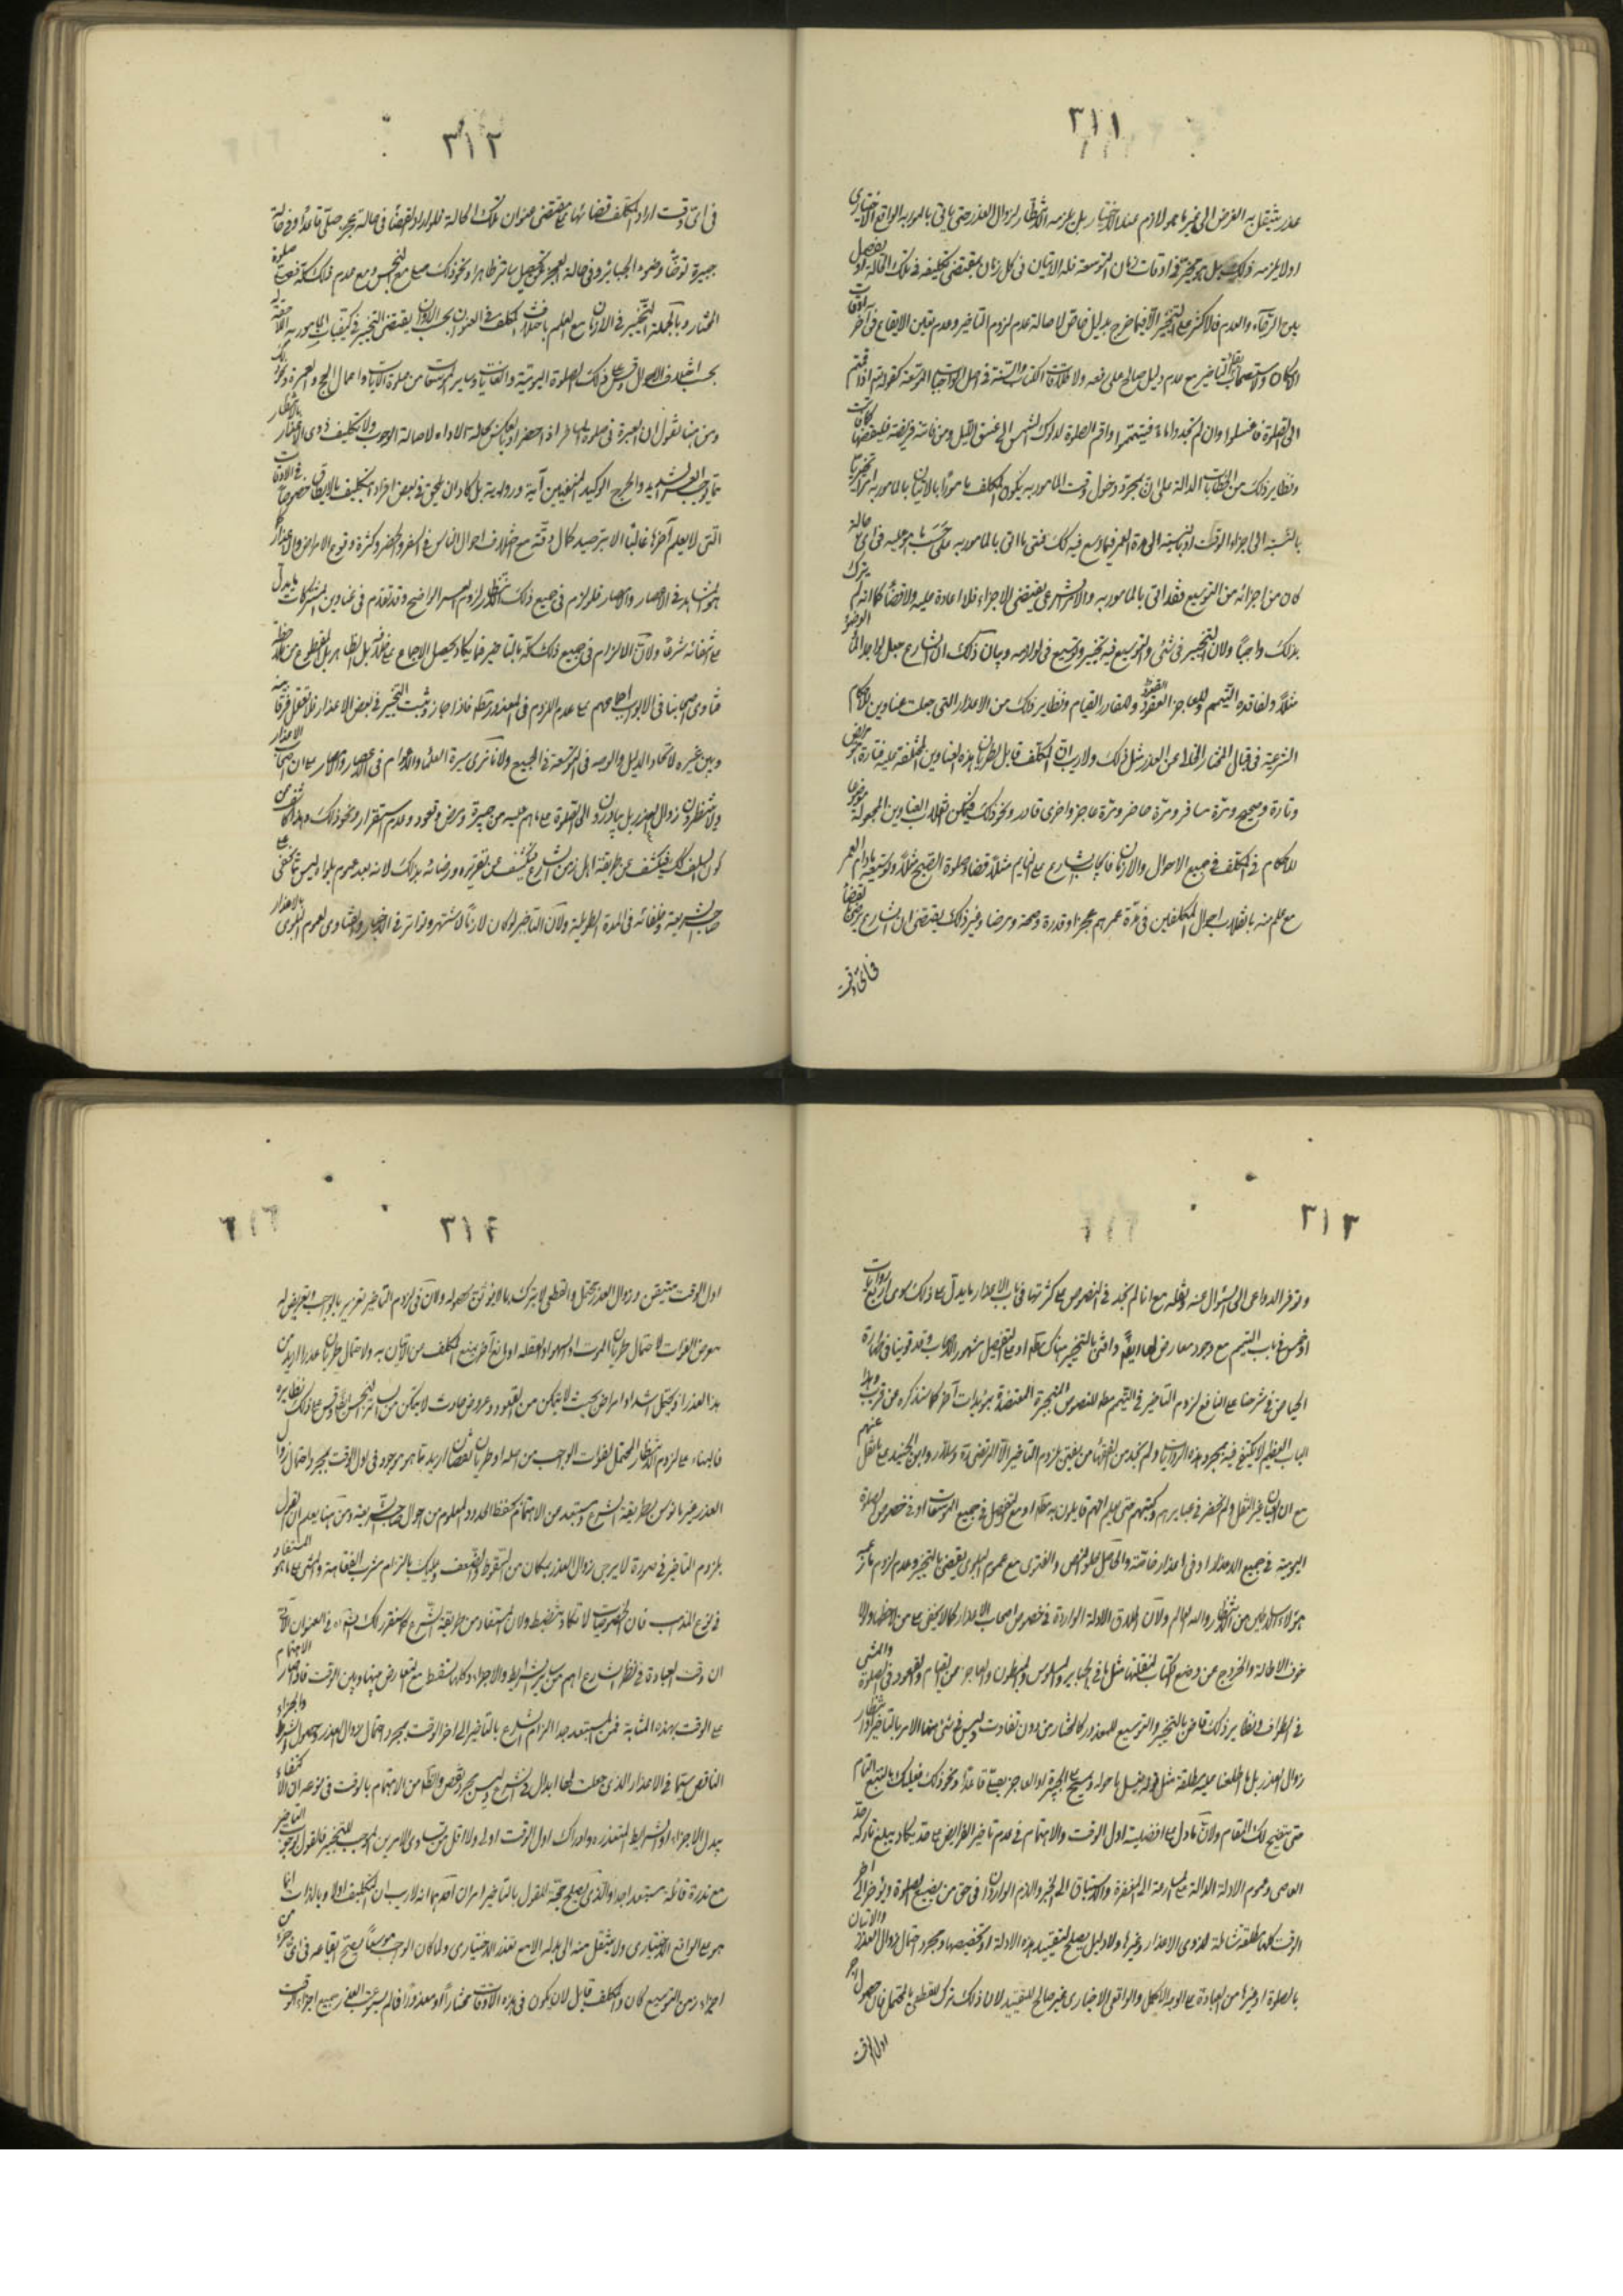 ٣١١
عذر ينتقل به الفرض الى غير ما هو لازم عند الاختيار بل يلزمه الانتظار لزوال العذر حتى ياتى بالمامور به الواقع الاختيارى
او لا يلزمه ذلك بل هو مخير فى اوقات زمان التوسعة فله الاتيان فى كل زمان بمقتضى تكليفه فى تلك الحالة او يفصل
بين الرجاء والعدم فالاكثر على التخيير الا فيما خرج بدليل خاص لاصالة عدم لزوم التاخير وعدم تعين الايقاع فى آخر اوقات
الامكان ولاستصحاب التاخير مع عدم دليل صالح على رفعه ولاطلاقات الكتاب والسنة فى اصل الواجبات الموسعة كقوله اذا قمتم
الى الصلوة فاغسلوا وان لم تجدوا ماء فتيمموا واقم الصلوة لدلوك الشمس الى غسق الليل ومن فاتته فريضة فليقضها كما فاتت
ونظاير ذلك من الخطابات الدالة على ان بمجرد دخول وقت المامور به يكون المكلف مامورا بالاتيان بالمامور به
بالنسبة الى اجزاء الوقت او بالنسبة الى مدة العمر فيما وسع فيه كك فمتى ما اتى بالمامور به على حسب ما هو عليه فى اى حالة
كان من اجزائه من التوسيع فقد اتى بالمامور به والامر الشرعى يقتضى الاجزاء فلا اعادة عليه ولا قضاء كما انه لم يترك
بذلك واجبا ولان التخيير فى شئ والتوسيع فيه تخيير وتوسيع فى لوازمه وبيان ذلك ان الشارع جعل لواجد الماء الوضوء
مثلا ولفاقده التيمم وللعاجز القعود وللقادر القيام ونظاير ذلك من الاعذار التى جعلت عناوين للاحكام
الشرعية فى قبال المختار الخالى عن العذر مثل ذلك ولا ريب ان المكلف قابل لطريان هذه العناوين المختلفة عليه فتارة هو مريض
وتارة صحيح ومرة مسافر ومرة حاضر ومرة عاجز واخرى قادر ونحو ذلك فيمكن انقلاب العناوين المجعولة
للاحكام فى المكلف فى جميع الاحوال والازمان فايجاب الشارع على النايم مثلا قضاء صلوة الصبح مثلا وتوسيعه مادام العمر
مع علمه بانقلاب احوال المكلفين فى مدة عمرهم عجزا وقدرة وصحة ومرضا وغير ذلك يقتضى ان الشارع
فى اى وقت
٣١٢
فى اى وقت اراد المكلف قضائها على مقتضى عنوان تلك الحالة فلو اراد القضاء فى حالة عجز صلى قاعدا وفى حالة
جبيرة توضأ وضوء الجباير وفى حالة العجز
المختار وبالجملة التخيير فى الازمان مع العلم باختلاف المكلف فى العنوان بحسب الازمان يقتضى التخيير فى كيفيات المامور به اللاحقة له
بحسب اختلاف الاحوال وقس على ذلك الصلوة اليومية والفائتات وساير الموسعات من صلوة الايات واعمال الحج والعمرة ونحو ذلك
ومن هنا نقول ان العبرة فى صلوة المسافر اذا حضر او بالعكس بحالة الاداء لاصالة الوجوب ولان تكليف ذوى الاعذار بالانتظار
مما يوجب العسر الشديد والحرج الوكيد المنفيين آية ورواية بل كاد ان يلحق فى بعض افراده بتكليف ما لا يطاق خصوصا فى الاوقات
التى لا يعلم آخرها غالبا الا بترصيد كمال دقة مع اختلاف احوال الناس فى السفر والحضر وكثرة وقوع الامراض والاعذار كما
هو المشاهد فى الاعصار والامصار فلو لزم فى جميع ذلك الانتظار لزم العسر الواضح وقد تقدم فى عناوين المشتركات ما يدل
على انتفائه شرعا ولان الالزام فى جميع ذلك كله بالتاخير مما يكاد يحصل الاجماع على خلافه بل الظاهر بل المقطوع من ملاحظة
فتاوى اصحابنا فى الابواب اجماعهم على عدم اللزوم فى المعذور مطلقا فاذا جاز وثبت التخيير فى بعض الاعذار فلا نعقل فرقا بينه
وبين غيره لاتحاد الدليل والوجه فى التوسعة فى الجميع ولانا نرى سيرة العلماء والعوام فى الاعصار والامصار على ان اصحاب الاعذار
لا ينتظرون زوال العذر بل يبادرون الى الصلوة على ما هم عليه من جبيرة ومرض وقعود وعدم استقرار ونحو ذلك وهذا كاشف عن
كون السلف كك فيكشف عن طريقة اهل زمن الشارع فيكشف عن تقريره ورضائه بذلك لانه بعد عموم بلواه ليس مما يخفى على
صاحب الشريعة وخلفائه فى المدة الطويلة ولان التاخير لو كان لازما لاشتهر وتواتر فى الاخبار والفتاوى لعموم البلوى بالاعذار
٣١٣
وتوفر الدواعى الى السؤال عنه ونقله مع انا لم نجد فى النصوص على كثرتها فى باب الاعذار ما يدل على ذلك سوى روايات اربع
او خمس فى باب التيمم مع وجود معارض لها ايضا وافتى بالتخيير هناك مطلقا او مع التفصيل مشهور الاصحاب وقد قوينا فى طهارة
الحياض فى شرحنا على النافع لزوم التاخير فى التيمم مطلقا للنصوص المنجبرة المعتضدة بمؤيدات آخر كما سنذكره عن قريب وهذا
الباب العظيم لا يكتفى فيه بمجرد هذه الروايات ولم نجد من الفقهاء من يفتى بلزوم التاخير الا المرتضى ره وسلار وابن الجنيد على ما نقل عنهم
مع ان
اليومية فى جميع الاعذار او فى اعذار خاصة والحاصل خلو النص والفتوى مع عموم البلوى يقضى بالتخيير وعدم لزوم ما زعمه
هؤلاء الاجلاء من الانتظار والله العالم ولان اطلاق الادلة الواردة فى خصوص اصحاب الاعذار كما لا يخفى على من لاحظها ولولا
خوف الاطالة والخروج عن وضع الكتاب لنقلتها مثل ما فى الجباير والمسلوس والمبطون والعاجز عن القيام والقعود فى الصلوة والمشى
فى الطواف ونظاير ذلك قاض بالتخيير والتوسيع للمعذور كالمختار من دون تفاوت وليس فى شئ منها الامر بالتاخير او انتظار
زوال العذر بل ما اطلعنا عليه مطلقة مثل قوله يغسل ما حوله ويمسح على الجبيرة او العاجز يصلى قاعدا ونحو ذلك فعليك بالتتبع التام
حتى يتضح لك المقام ولان ما دل على افضلية اول الوقت والاهتمام فى عدم تاخير الفرايض على حد يكاد يبلغ تاركه حد
العاصى وعموم الادلة الدالة على المسارعة الى المغفرة والاستباق الى الخير والذم الوارد فى حق من يضيع الصلوة ويؤخر الى آخر
الوقت كلها مطلقة شاملة لذوى الاعذار وغيرها ولا دليل يصلح لتقييد هذه الادلة او تخصيصها ومجرد احتمال زوال العذر والاتيان
بالصلوة او غيرها من العبادة على الوجه الاكمل والواقعى الاختيارى غير صالح للتقييد لان ذلك ترك للقطعى بالمحتمل فان حصول اجر
اول الوقت
٣١٤
اول الوقت متيقن وزوال العذر محتمل والقطعى لا يترك بما لا يوثق بحصوله ولان فى لزوم التاخير تغرير بالواجب وتعريض له
معرض الفوات لاحتمال طريان الموت او السهو او الغفلة او مانع آخر يمنع المكلف من الاتيان به ولاحتمال طريان عذر ازيد من
هذا العذر اذ يحتمل اشتداد امراض بحيث لا يتمكن من القعود وعروض حادث لا يتمكن من وقس على ذلك نظايره
فالبناء على لزوم الانتظار المحتمل لفوات الواجب من اصله او طريان نقصان ازيد مما هو موجود فى اول الوقت بمجرد احتمال زوال
العذر غير مانوس بطريقة الشرع ومستبعد عن الاهتمام بحفظ الحدود المعلوم من احوال صاحب الشريعة ومن هنا يعلم ان القول
بلزوم التاخير فى صورة لا يرجى زوال العذر بمكان من السقوط والضعف وعليك بالتزام مشرب الفقاهة والمشى على ما هو المستفاد
فى فروع المذهب فان الخصوصيات لا تكاد تنضبط ولان المستفاد من طريقة الشرع كما سنقرر لك انشاء الله فى العنوان الآتى
ان وقت العبادة فى نظر الشارع اهم من ساير الشرايط والاجزاء وكلها تسقط مع التعارض بينها وبين الوقت فاذا صار الاهتمام
على الوقت بهذه المثابة فمن المستبعد جدا الزام الشارع بالتاخير الى اخر الوقت بمجرد احتمال زوال العذر وحصول الشرط والجزاء
الناقص سيما فى الاعذار الذى جعلت لها ابدال فى الشرع
بدل الاجزاء او الشرايط المتعذرة وادراك اول الوقت اولى ولا اقل من تساوى الامرين الموجب للتخيير فالقول بوجوب التاخير
مع ندرة قائله مستبعد جدا والذى يصلح حجة للقول بالتاخير امران احدهما انه لا ريب ان التكليف اولا وبالذات انما
هو على الواقع الاختيارى ولا ينتقل منه الى بدله الا مع تعذر الاختيارى ولما كان الواجب موسعا يصح ايقاعه فى اى جزء من
اجزاء زمن التوسيع كان والمكلف قابل لان يكون فى هذه الاوقات مختارا ومعذورا فما لم يستوعب العذر جميع اجزاء الوقت